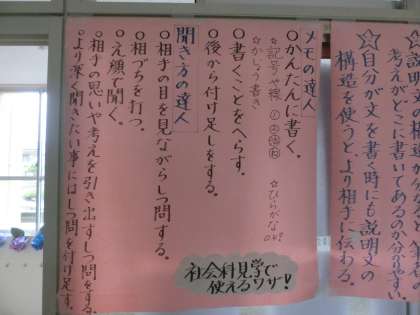 ☆文章の構造が
考えがどこに書いてあるのか分かりやすい。
☆自分が文を書く時にも説明文の
構造を使うと、より相手に伝わる。
メモの達人
○かんたんに書く。
☆記号や線
☆ひらがなOK!
☆かじょう書き
○書くことをへらす。
○後から付け足しをする。
聞き方の達人
○相手の目を見ながらしつ問する。
○相づちを打つ。
○え顔で聞く。
○相手の思いや考えを引き出すしつ問をする。
○より深く聞きたい事にはしつ問を付け足す。
社会科見学で
使えるワザ!